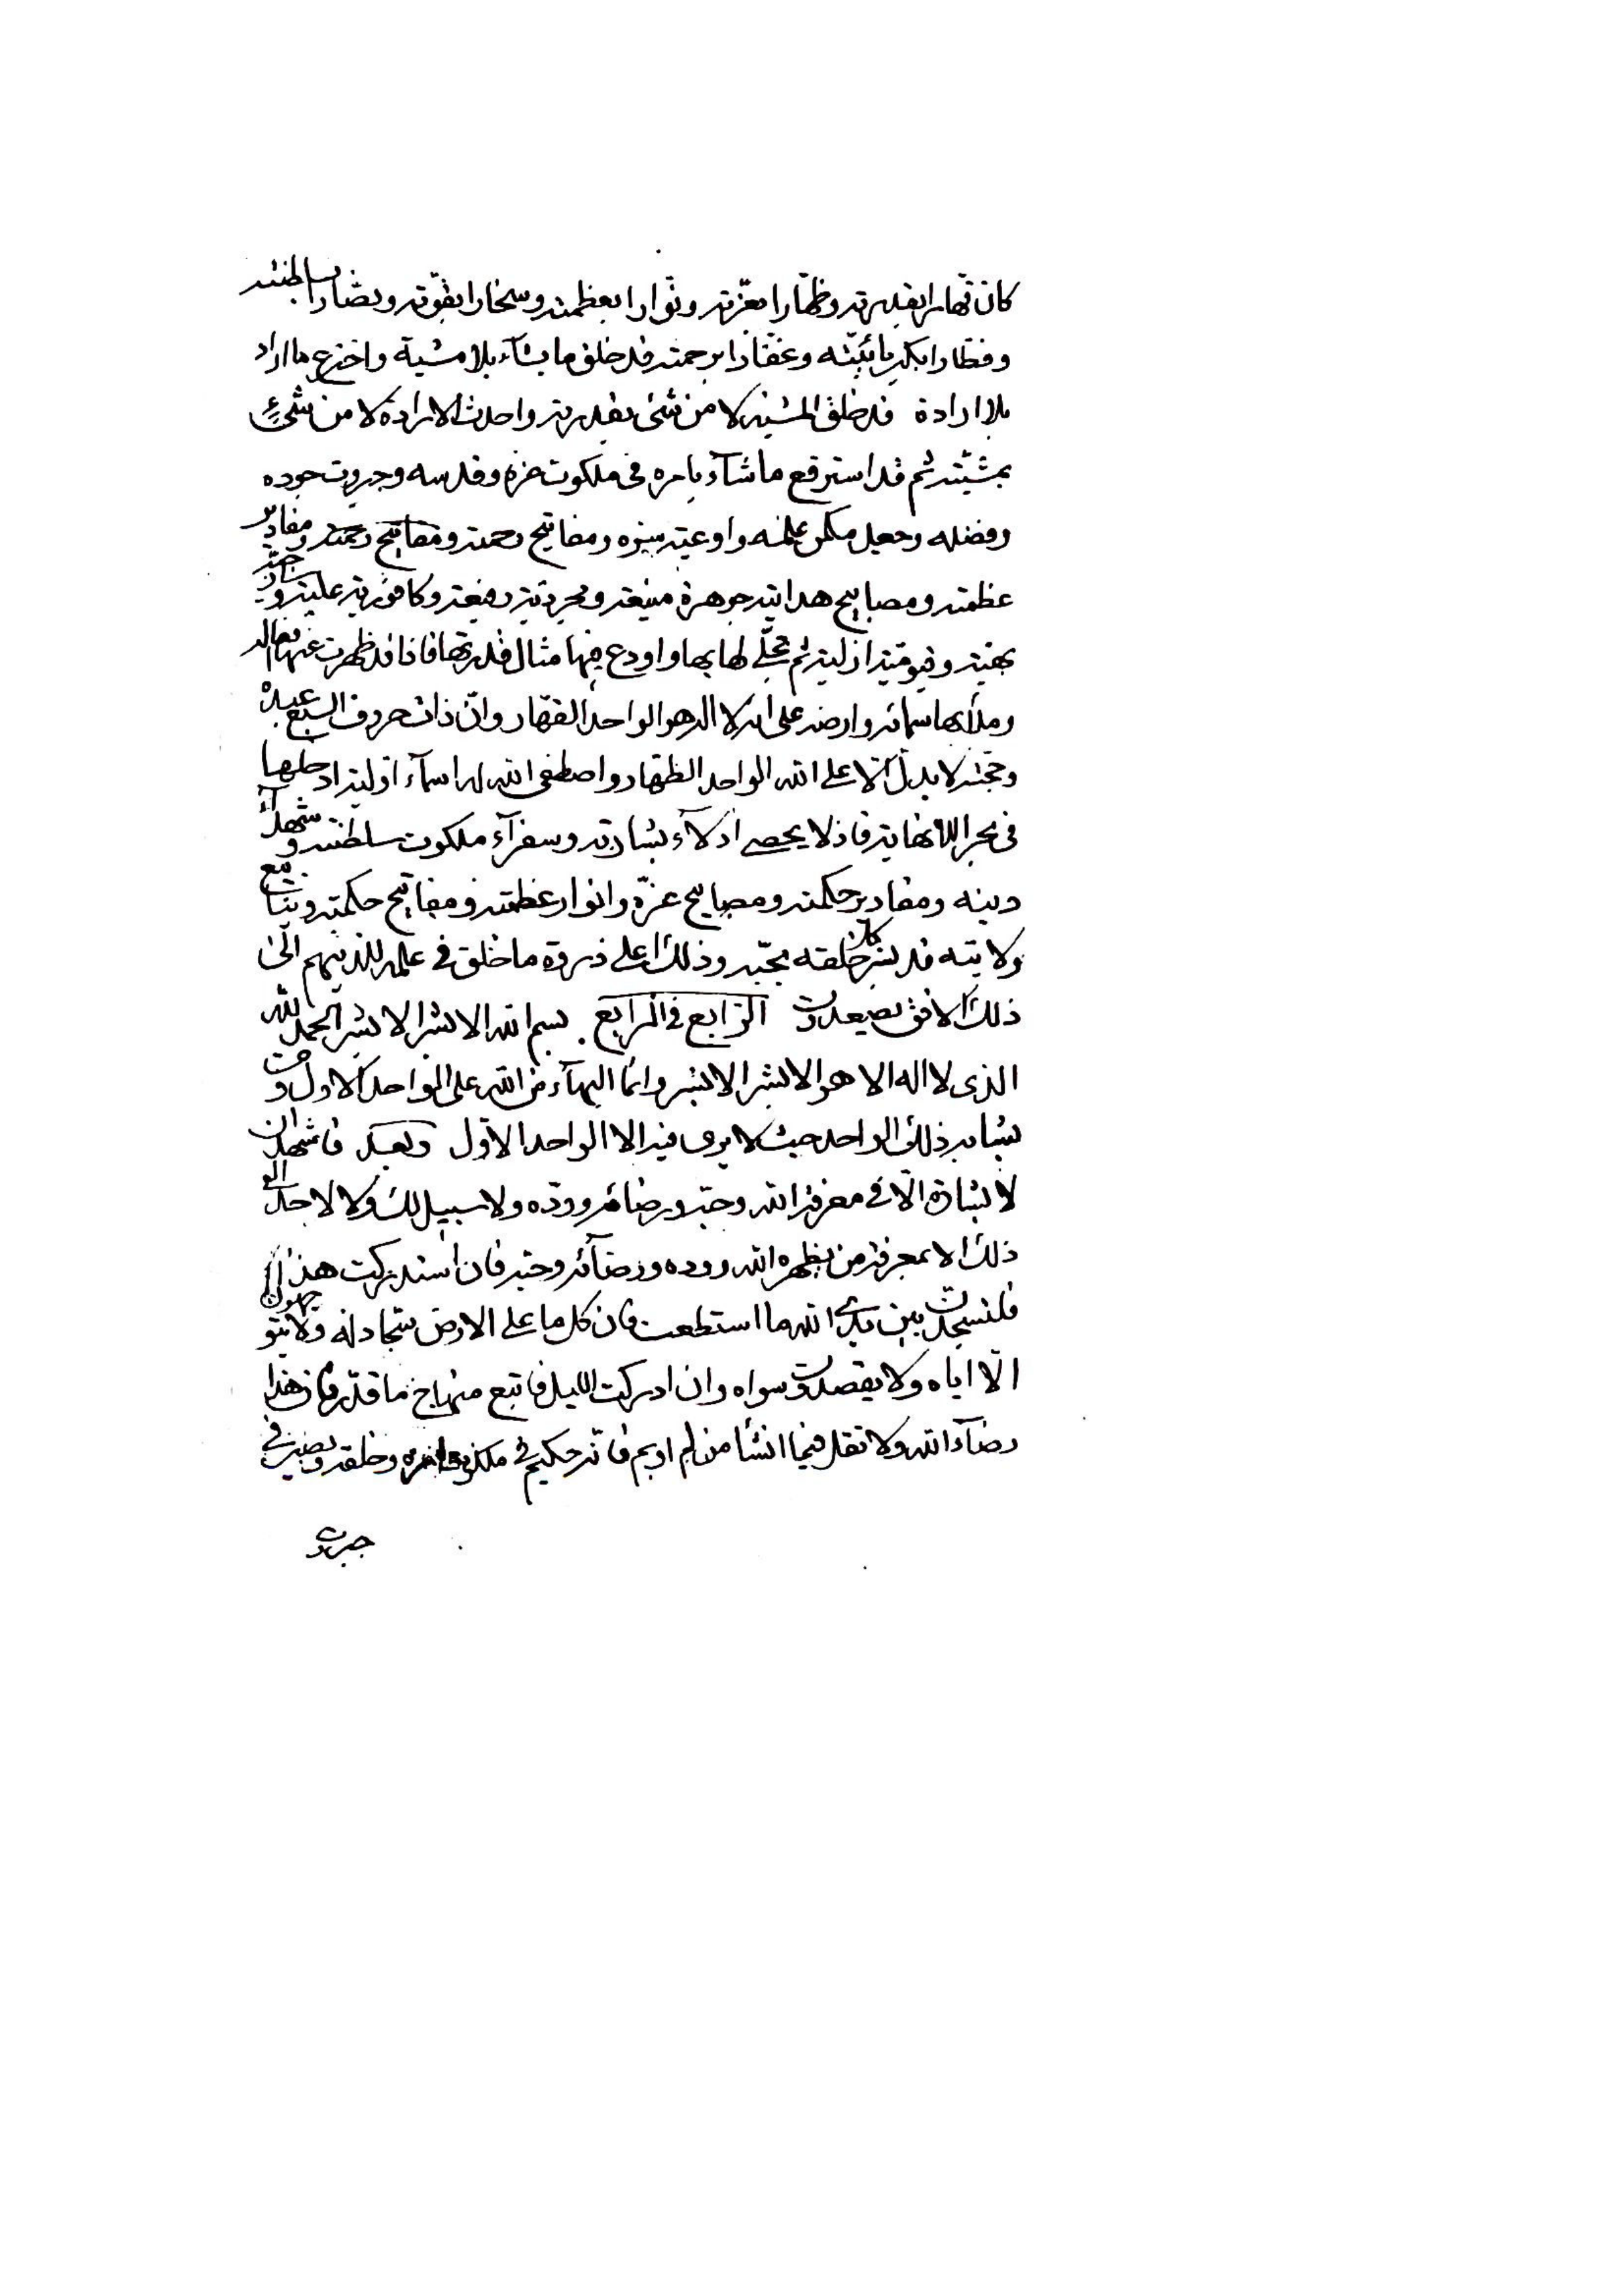 كان قهارا بقدرته وظهارا بعزته ونوارا بعظمته وسخارا بقوته وبصارا بسلطنته
وفظارا بكبريائيته وغفارا برحمته قد خلق ما يشآء بلا مشية واخترع ما اراد
بلا ارادة قد خلق المشية لا من شئ بقدرته واحدث الارادة لا من شئ
بمشيته ثم قد استرفع ما شآء بامره فى ملكوت عزه وقدسه وجبروت جوده
وفضله وجعل مكمن علمه واوعية سره ومفاتيح رحمته ومصابيح رحمته ومقادير
عظمته ومصابيح هدايته جوهرة منيعة ومجردية رفيعة وكافورية علية وساذجية
بهية وقيومية ازلية ثم تجلى لها بها واودع فيها مثال قدرتها فاذا قد ظهرت عنها افعاله
وملأ بها سمائه وارضه على انه لا اله هو الواحد القهار وان ذات حروف السبع عبده
وحجته لا يدل الا على الله الواحد الظهار واصطفى الله له اسمآء اولية ادخلها
فى بحر اللانهاية فاذ لا يحصى ادلآء بشارته وسفرآء ملكوت سلطنته وشهدآء
دينه ومقادير حكمته ومصابيح عزه وانوار عظمته ومفاتيح حكمته وينابيع
ولايته قد بشر كل خلقه بحبه وذلك اعلى ذروة ما خلق فى علمه للذينهم الى
ذلك الافق يصعدون الرابع فى الرابع بسم الله الابشر الابشر الحمد لله
الذى لا اله الا هو الابشر الابشر وانما البهآء من الله على الواحد الاول ومن
يشابه ذلك الواحد حيث لا يرى فيه الا الواحد الاول وبعد فاشهد ان
لا بشارة الا فى معرفة الله وحبه ورضائه ووده ولا سبيل لك ولا لاحد الى
ذلك الا بمعرفة من يظهره الله ووده ورضآئه وحبه فان استدركت هذا
فلتسجدن بين يدى الله ما استطعت فان كل ما على الارض تجاد له ولا يتوجهون
الا اياه ولا يقصدون سواه وان ادركت الليل فاتبع منهاج ما قدر فان هذا
رضآء الله ولا تقل فيما انشأ من لم او بم فانه حكيم فى ملكوت امره وخلقه وبصير فى
جبروت